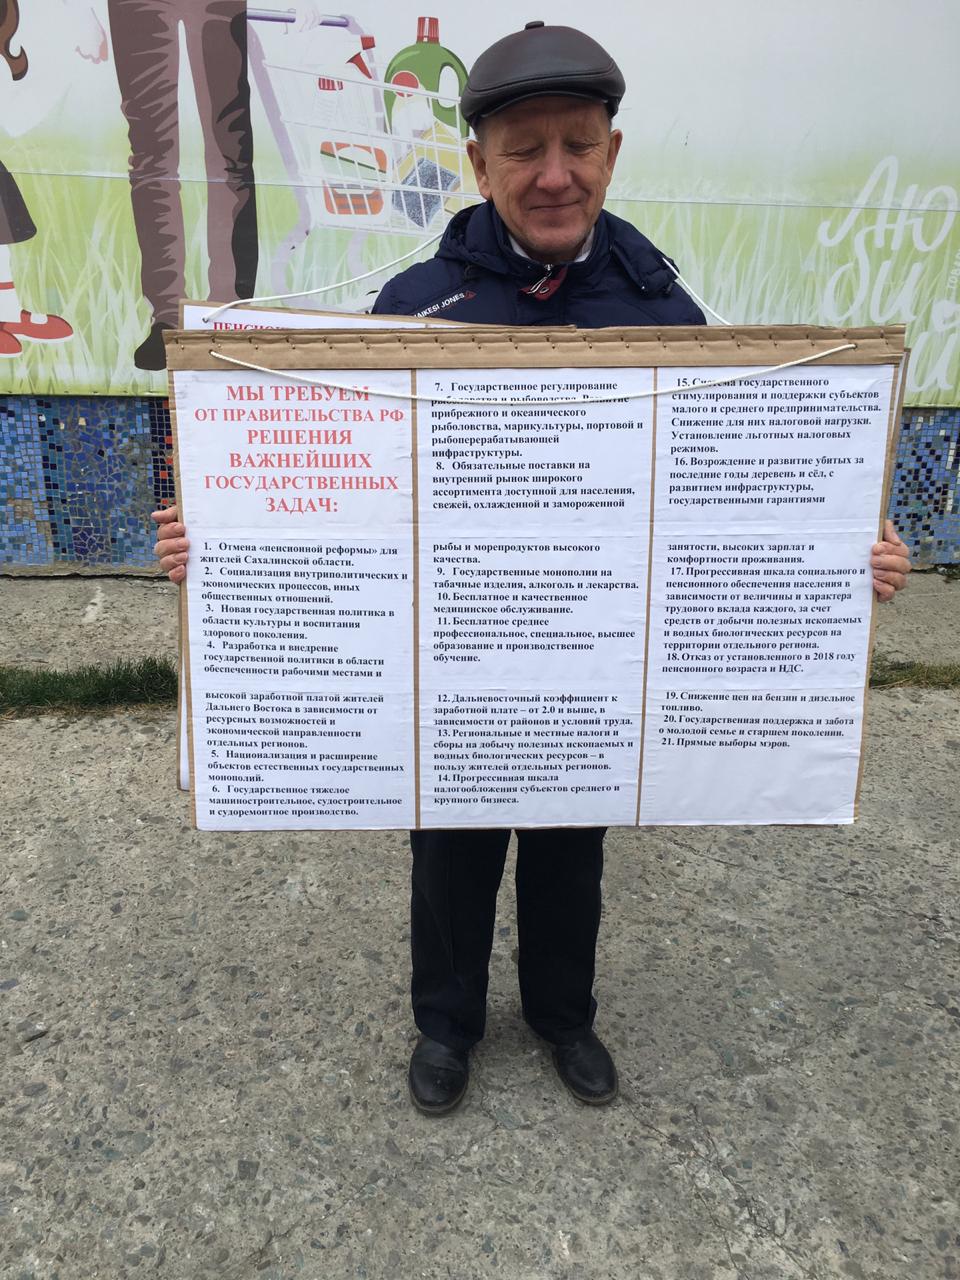 Лю
би
ТОВАР
MAIKESI JONES
ПЕНСИОН
МЫ ТРЕБУЕМ
ОТ ПРАВИТЕЛЬСТВА РФ
РЕШЕНИЯ
ВАЖНЕЙШИХ
ГОСУДАРСТВЕННЫХ
ЗАДАЧ:
1. Отмена «пенсионной реформы» для
жителей Сахалинской области.
2. Социализация внутриполитических и
экономических процессов, иных
общественных отношений.
3. Новая государственная политика в
области культуры и воспитания
здорового поколения.
4. Разработка и внедрение
государственной политики в области
обеспеченности рабочими местами и
высокой заработной платой жителей
Дальнего Востока в зависимости от
ресурсных возможностей и
экономической направленности
отдельных регионов.
5. Национализация и расширение
объектов естественных государственных
монополий.
6. Государственное тяжелое
машиностроительное, судостроительное
и судоремонтное производство.
7. Государственное регулирование
рыболовства и рыбоводства. Развитие
прибрежного и океанического
рыболовства, марикультуры, портовой и
рыбоперерабатывающей
инфраструктуры.
8. Обязательные поставки на
внутренний рынок широкого
ассортимента доступной для населения,
свежей, охлажденной и замороженной
рыбы и морепродуктов высокого
качества.
9. Государственные монополии на
табачные изделия, алкоголь и лекарства.
10. Бесплатное и качественное
медицинское обслуживание.
11. Бесплатное среднее
профессиональное, специальное, высшее
образование и производственное
обучение.
12. Дальневосточный коэффициент к
заработной плате – от 2.0 и выше, в
зависимости от районов и условий труда.
13. Региональные и местные налоги и
сборы на добычу полезных ископаемых и
водных биологических ресурсов – в
пользу жителей отдельных регионов.
14. Прогрессивная шкала
налогообложения субъектов среднего и
крупного бизнеса.
15. Система государственного
стимулирования и поддержки субъектов
малого и среднего предпринимательства.
Снижение для них налоговой нагрузки.
Установление льготных налоговых
режимов.
16. Возрождение и развитие убитых за
последние годы деревень и сёл, с
развитием инфраструктуры,
государственными гарантиями
занятости, высоких зарплат и
комфортности проживания.
17. Прогрессивная шкала социального и
пенсионного обеспечения населения в
зависимости от величины и характера
трудового вклада каждого, за счет
средств от добычи полезных ископаемых
и водных биологических ресурсов на
территории отдельного региона.
18. Отказ от установленного в 2018 году
пенсионного возраста и НДС.
19. Снижение цен на бензин и дизельное
топливо.
20. Государственная поддержка и забота
о молодой семье и старшем поколении.
21. Прямые выборы мэров.